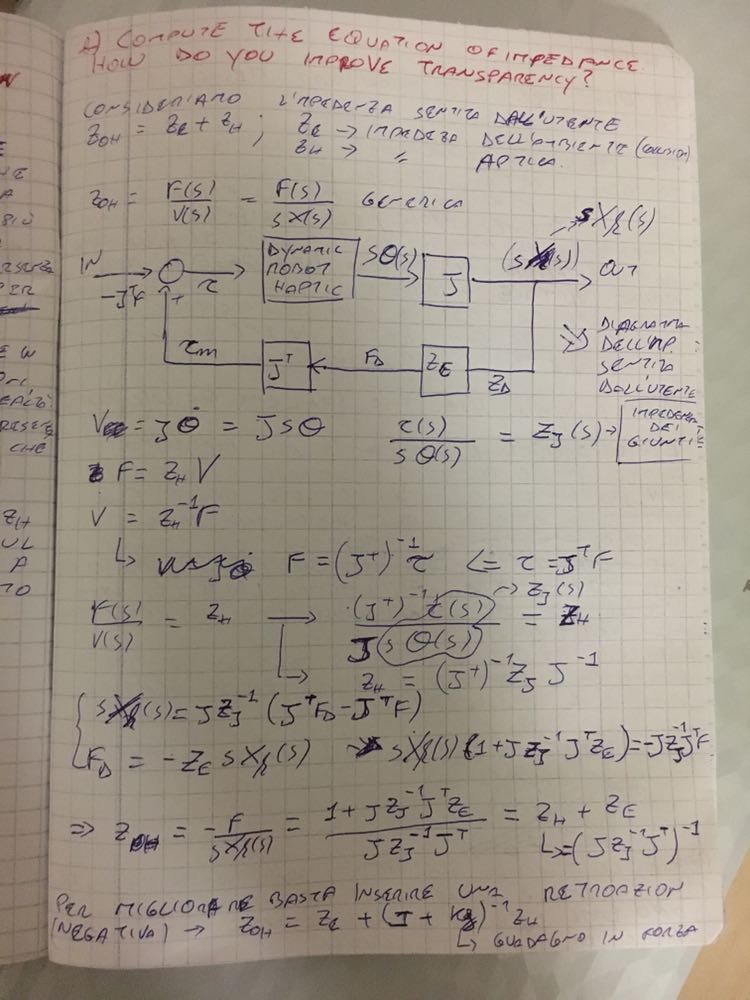 A) COMPUTE THE EQUATION OF IMPEDANCE.
HOW DO YOU IMPROVE TRANSPARENCY?
CONSIDERIAMO L'IMPEDENZA SENTITA DALL'UTENTE
Z_OH = Z_E + Z_H ; Z_E → IMPEDEZA DELL'AMBIENTE (COLLISION)
Z_H → " APTICA.
Z_OH = F(s)/V(s) = F(s)/sX(s) GENERICA
sX_R(s)
IN
-J^T F
+
τ
DYNAMIC ROBOT HAPTIC
sθ(s)
J
OUT
τm
J^T
F_D
Z_E
Z_D
DIAGRAMMA
DELL'IMP.
SENTITA
DALL'UTENTE
V = J θ̇ = J s θ
τ(s)/sθ(s) = Z_J(s) → IMPEDENZA DEI GIUNTI
F = Z_H V
V = Z_H^-1 F
↳ F = (J^T)^-1 τ ⇐ τ = J^T F
F(s)/V(s) = Z_H → (J^T)^-1 τ(s) / J sθ(s) = Z_H
→ Z_J(s)
↳ Z_H = (J^T)^-1 Z_J J^-1
{ sX_R(s) = J Z_J^-1 (J^T F_D - J^T F)
F_D = -Z_E sX_R(s) → sX_R(s) (1 + J Z_J^-1 J^T Z_E) = -J Z_J^-1 J^T F
⇒ Z_OH = -F/sX_R(s) = (1 + J Z_J^-1 J^T Z_E) / (J Z_J^-1 J^T) = Z_H + Z_E
↳ = (J Z_J^-1 J^T)^-1
PER MIGLIORARE BASTA INSERIRE UNA RETROAZION
(NEGATIVA) → Z_OH = Z_E + (I + K_F)^-1 Z_H
↳ GUADAGNO IN FORZA